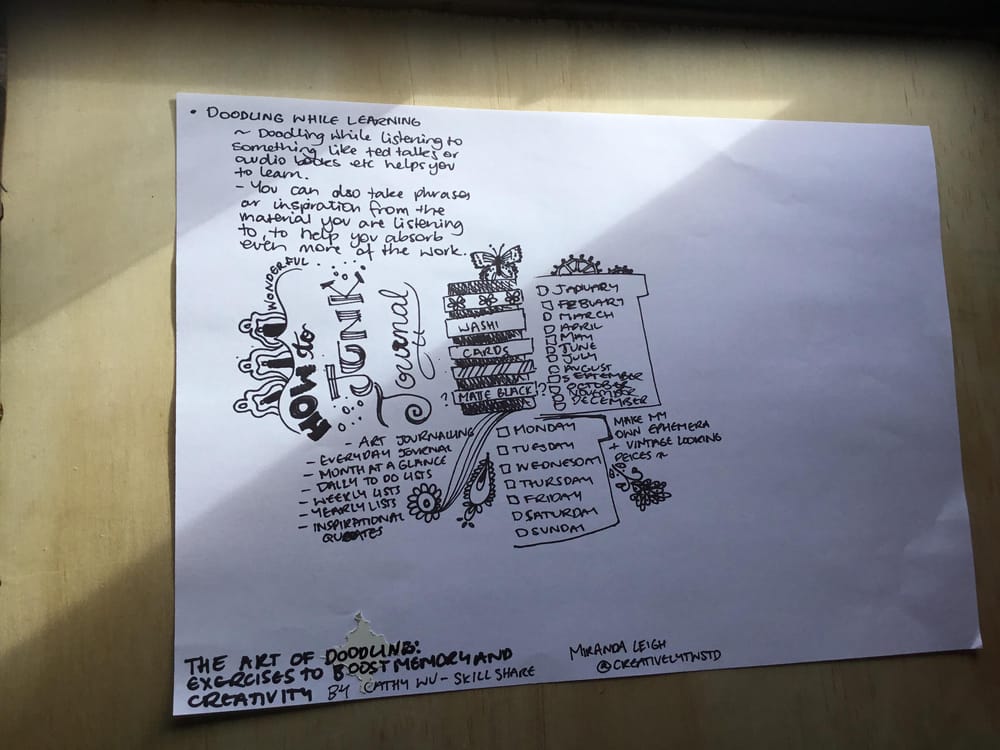 • DOODLING WHILE LEARNING
~ Doodling while listening to
something like ted talks or
audio books etc helps you
to learn.
- You can also take phrases
or inspiration from the
material you are listening
to, to help you absorb
even more of the work.
WONDERFUL
HOW to
JUNK
Journal
WASHI
CARDS
? MATTE BLACK ?
JANUARY
FEBUARY
MARCH
APRIL
MAY
JUNE
JULY
AUGUST
SEPTEMBER
OCTOBER
NOVEMBER
DECEMBER
- ART JOURNALLING
- EVERYDAY JOURNAL
- MONTH AT A GLANCE
- DAILY TO DO LISTS
- WEEKLY LISTS
- YEARLY LISTS
- INSPIRATIONAL
QUOATES
MONDAY
TUESDAY
WEDNESDAY
THURSDAY
FRIDAY
SATURDAY
SUNDAY
MAKE MY
OWN EPHEMERA
+ VINTAGE LOOKING
PEICES
THE ART OF DOODLING:
EXERCISES TO BOOST MEMORY AND
CREATIVITY BY CATHY WU - SKILLSHARE
MIRANDA LEIGH
@CREATIVELYTWSTD